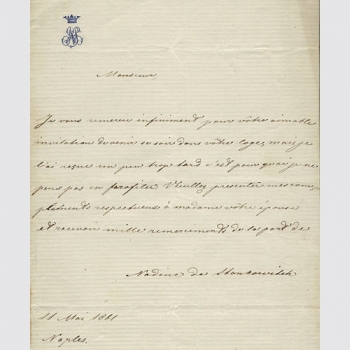 Monsieur
Je vous remercie infiniment pour vôtre aimable
invitation de venir ce soir dans votre loge, mais je
l'ai reçue un peu trop tard c'est pour quoi je ne
peux pas en profiter. Veuillez presenter mes com-
pliments respectueux à madame votre épouse
et recevoir mille remerciements de la part de
Nadine de
11 Mai 1881
Naples.